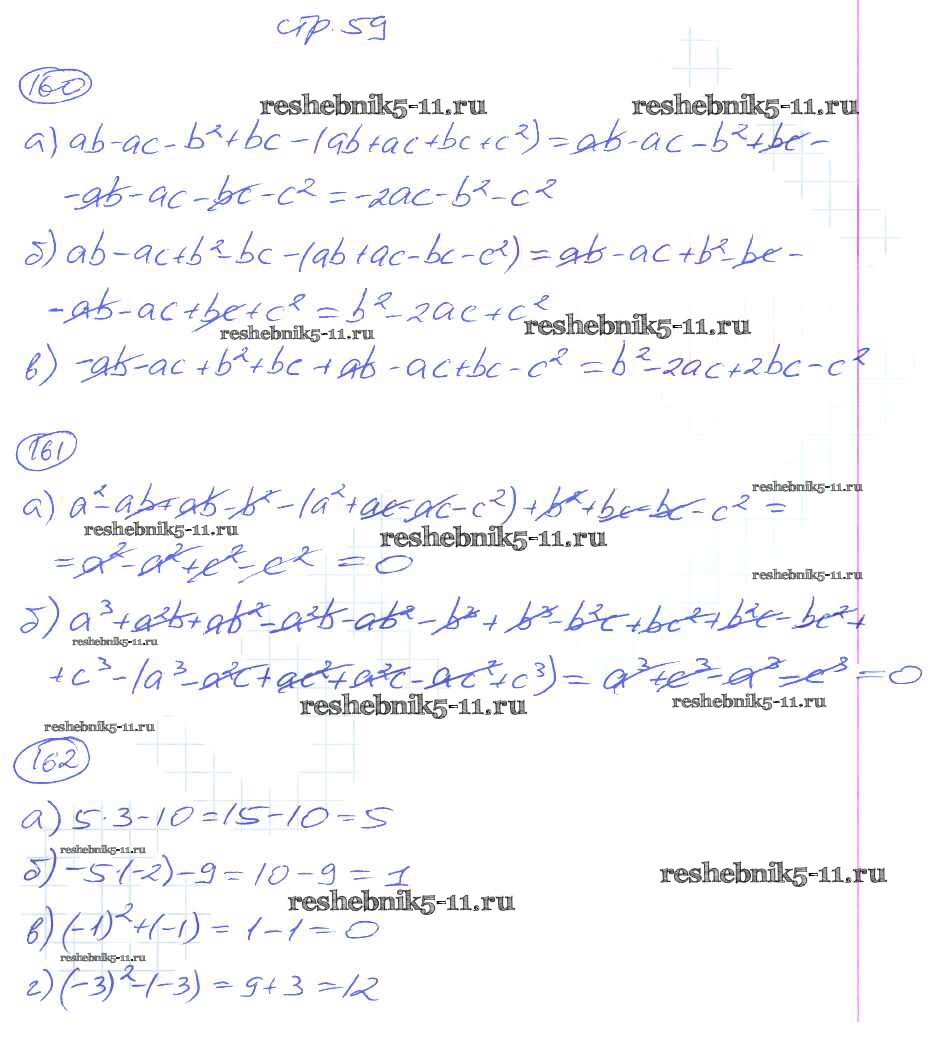 стр. 59
160
reshebnik5-11.ru reshebnik5-11.ru
а) ab-ac-b²+bc-(ab+ac+bc+c²)=ab-ac-b²+bc-
-ab-ac-bc-c²=-2ac-b²-c²
б) ab-ac+b²-bc-(ab+ac-bc-c²)=ab-ac+b²-bc-
-ab-ac+bc+c²=b²-2ac+c²
reshebnik5-11.ru reshebnik5-11.ru
в) -ab-ac+b²+bc+ab-ac+bc-c²=b²-2ac+2bc-c²
161
reshebnik5-11.ru
а) a²-ab+ab-b²-(a²+ac-ac-c²)+b²+bc-bc-c²=
reshebnik5-11.ru reshebnik5-11.ru
=a²-a²+c²-c²=0
reshebnik5-11.ru
б) a³+a²b+ab²-a²b-ab²-b³+b³-b²c+bc²+b²c-bc²+
reshebnik5-11.ru
+c³-(a³-a²c+ac²+a²c-ac²+c³)=a³+c³-a³-c³=0
reshebnik5-11.ru reshebnik5-11.ru
reshebnik5-11.ru
162
а) 5·3-10=15-10=5
reshebnik5-11.ru
б) -5·(-2)-9=10-9=1
reshebnik5-11.ru
reshebnik5-11.ru
в) (-1)²+(-1)=1-1=0
reshebnik5-11.ru
г) (-3)²-(-3)=9+3=12